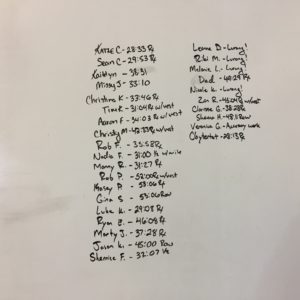 Katie C - 28:33 Rx
Sean C - 29:53 Rx
Kaitlyn - 38:31
Missy J - 33:10
Christina K - 33:46 Rx
Tina K - 31:04 Rx w/vest
Aaron F - 34:03 Rx w/vest
Christy M - 42:33 Rx w/vest
Rob F. - 35:58 Rx
Nadia F - 31:00 ½
Manny R - 31:27 Rx
Rob P. - 52:00 Rx w/vest
Kasey P. - 53:06 Rx
Gina S - 53:06 Row
Luke K. - 29:08 Rx
Ryan Z. - 46:08 Rx
Marty J. - 37:28 Rx
Jason K. - 45:00 Row
Shamice F. - 32:07 ½
Leanne D - 
Riki M. - 
Melanie L - 
Dad - 40:29 Rx
Nicole K. - 
Zan R - 45:04 Rx w/vest
Clarisse G - 38:28 Rx
Shana H - 48:11 Row
Veronica G - Accessory work
Claytastah - 28:13 Rx